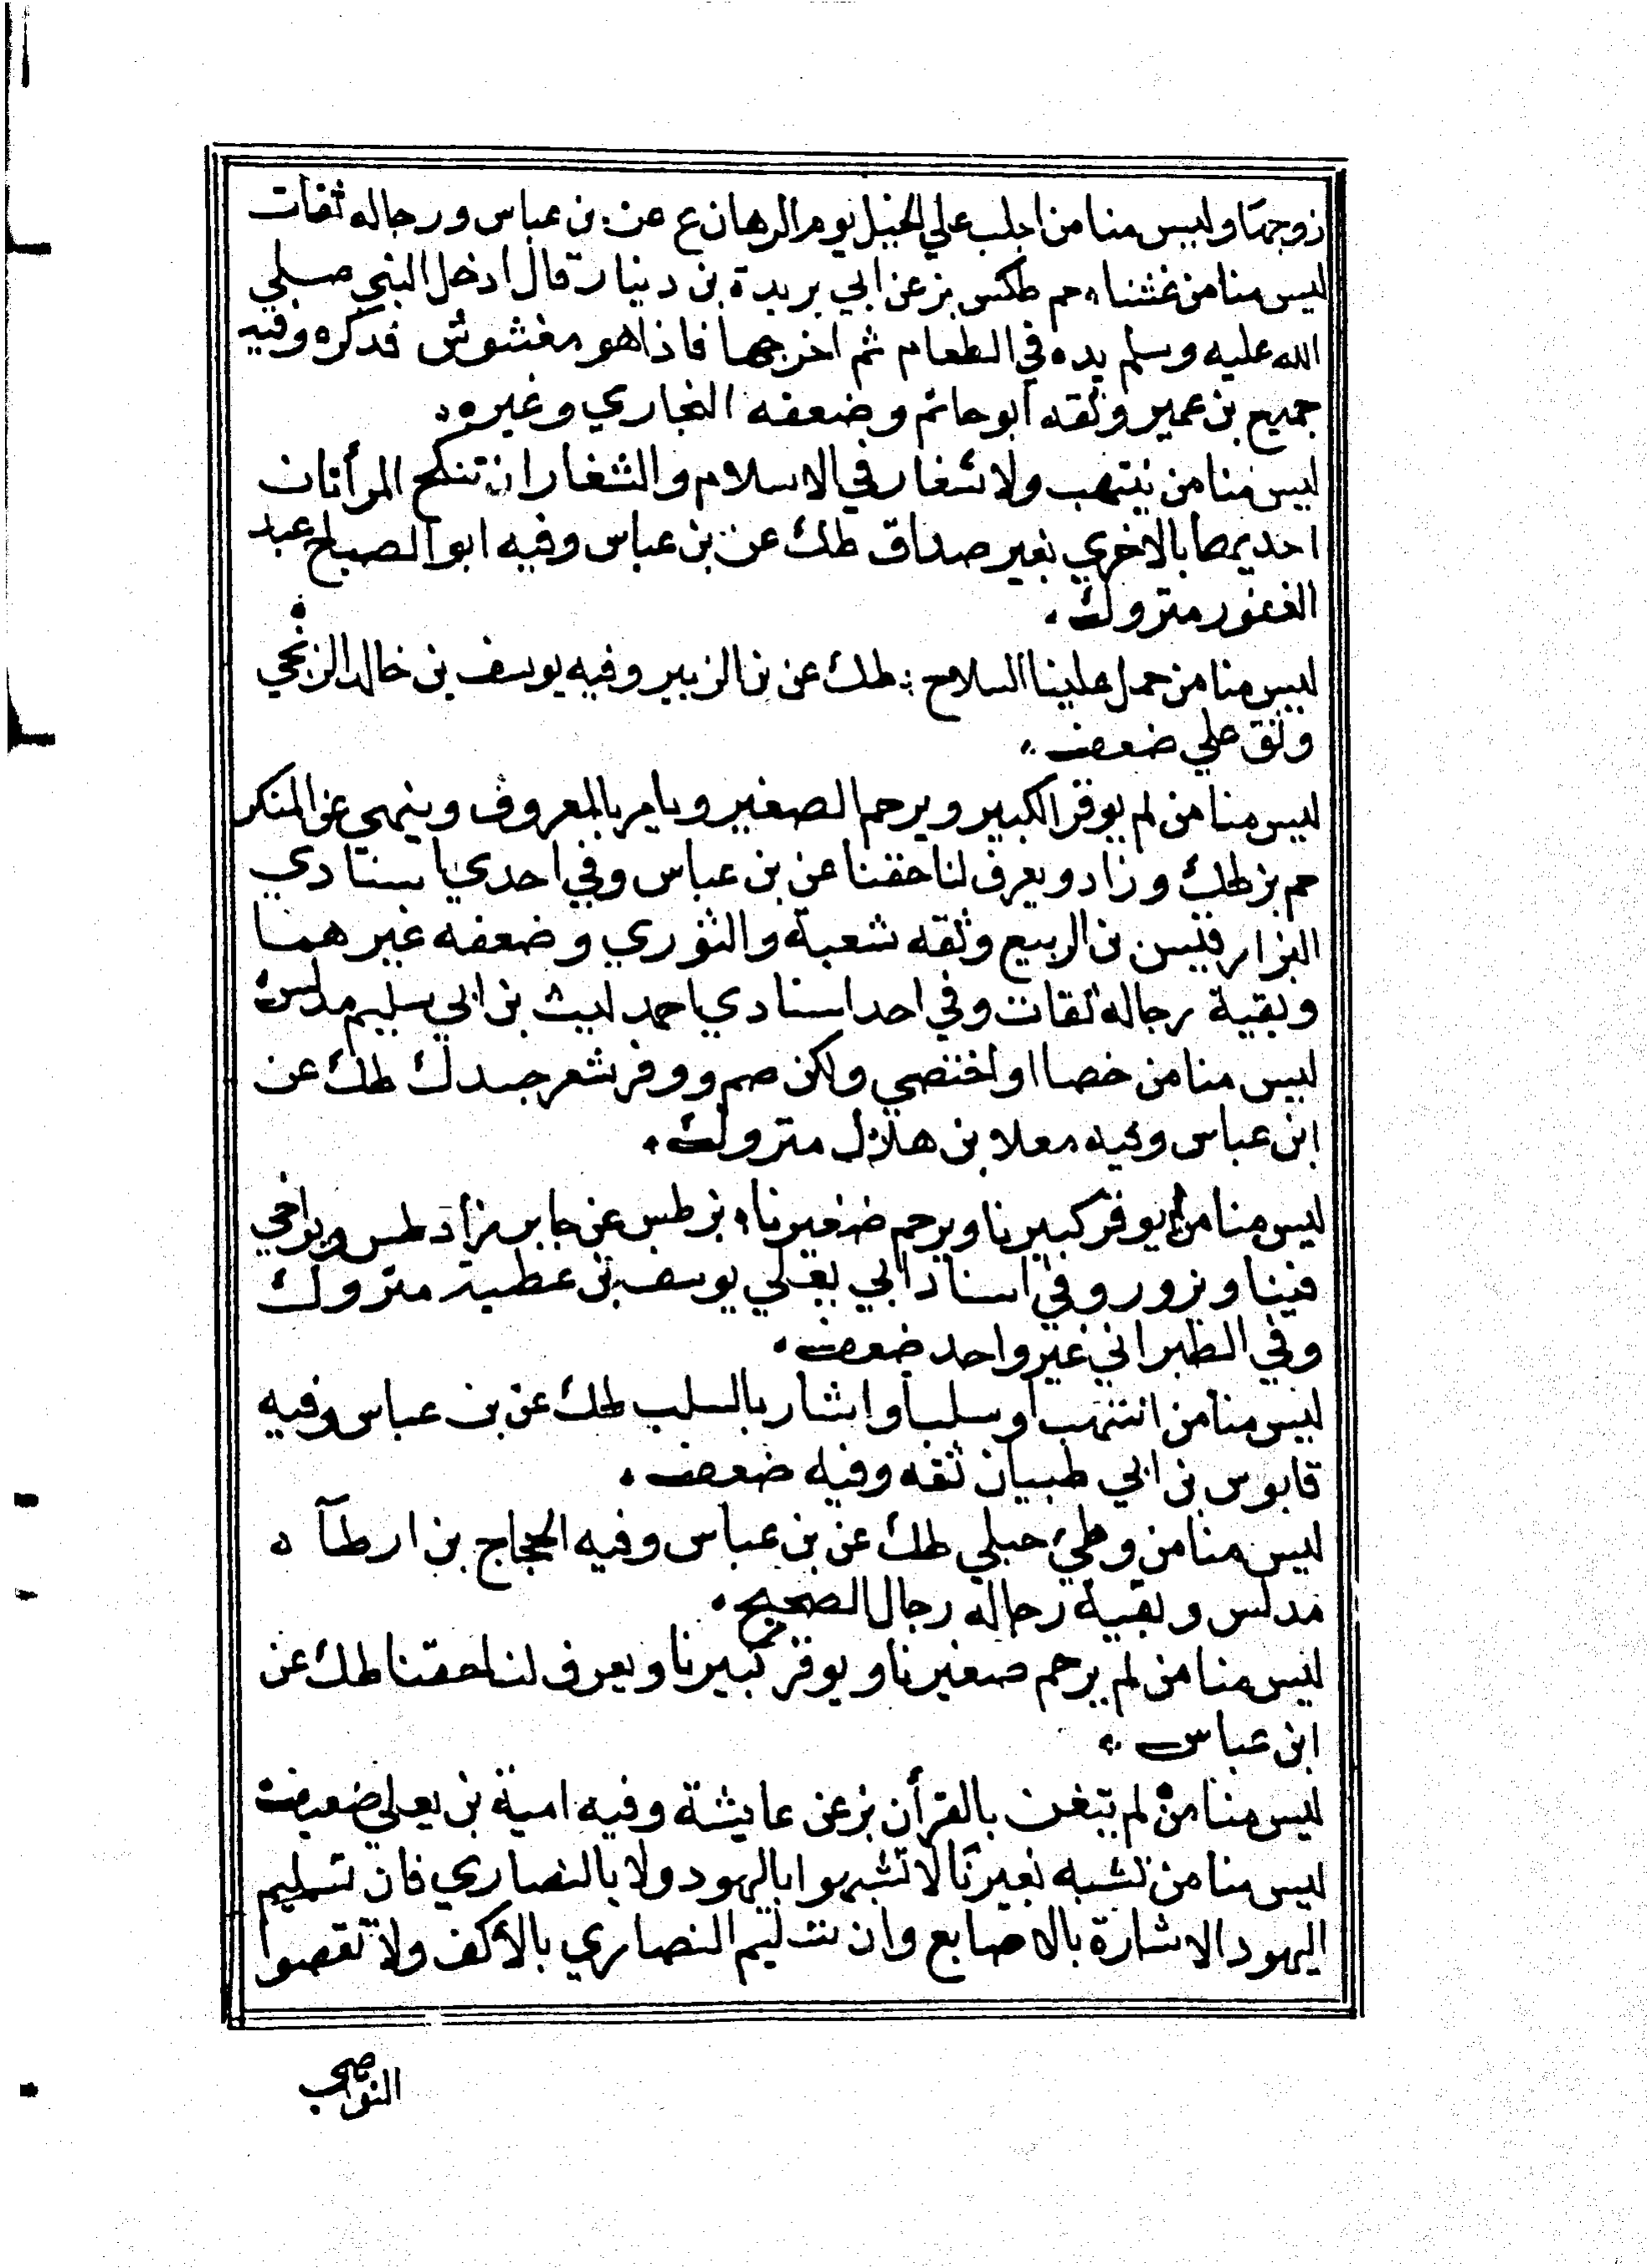 زوجها وليس منا من اجلب علي الخيل يوم الرهان ع عن بن عباس ورجاله ثقات
ليس منا من غشنا، حم طكس بز عن ابي بريدة بن دينار قال ادخل النبي صلي
الله عليه وسلم يده في الطعام ثم اخرجها فاذا هو مغشوش فدكره وفيه
جميع بن عمير وثقه ابو حاتم وضعفه البخاري وغيره،
ليس منا من ينتهب ولا شغار في الاسلام والشغار ان تنكح المرأتان
احديهما بالاخري بغير صداق طك عن بن عباس وفيه ابو الصباح عبد
الغفور متروك،
ليس منا من حمل علينا السلاح : طك عن بن الزبير وفيه يوسف بن خالد الزنجي
وثق علي ضعف،
ليس منا من لم يوقر الكبير ويرحم الصغير ويامر بالمعروف وينهي عن المنكر
حم بز طك وزاد ويعرف لنا حقنا عن بن عباس وفي احدي اسنادي
البزار قيس بن الربيع وثقه شعبة والثوري وضعفه غيرهما
وبقية رجاله ثقات وفي احد اسنادي احمد ليث بن ابي سليم مدلس
ليس منا من خصا او اختصي ولكن صم ووفر شعر جسدك طك عن
ابن عباس وفيه معلا بن هلال متروك،
ليس منا من لم يوقر كبيرنا ويرحم صغيرنا، بز طس عن جابر زاد طس ويواخي
فينا ويزور وفي اسناد ابي يعلي يوسف بن عطية متروك
وفي الطبراني غير واحد ضعف،
ليس منا من انتهب او سلب او اشار بالسلب طك عن بن عباس وفيه
قابوس بن ابي طبيان ثقه وفيه ضعف،
ليس منا من وطئ حبلي طك عن بن عباس وفيه الحجاج بن ارطآه
مدلس وبقية رجاله رجال الصحيح،
ليس منا من لم يرحم صغيرنا ويوقر كبيرنا ويعرف لنا حقنا طك عن
ابن عباس،
ليس منا من لم يتغن بالقرأن بز عن عايشة وفيه امية بن يعلي ضعيف
ليس منا من تشبه بغيرنا لا تشبهوا باليهود ولا بالنصاري فان تسليم
اليهود الاشارة بالاصابع وان تسليم النصاري بالأكف ولا تقصوا
النواصي